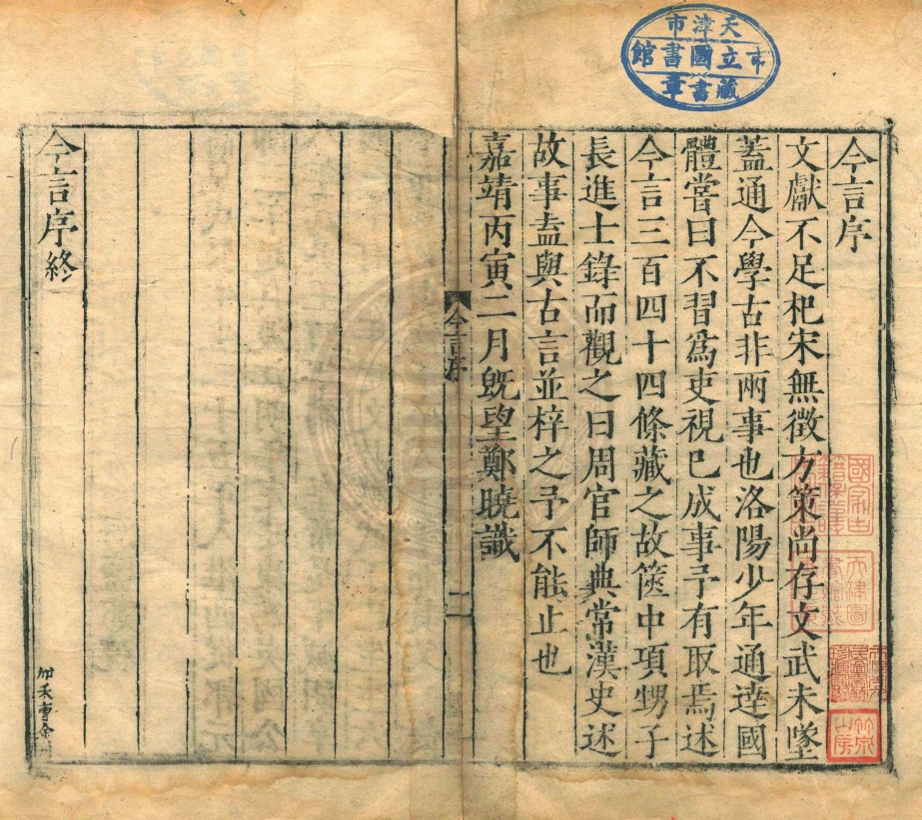 天津市
市立圖書館
藏書章
今言序
文獻不足杞宋無徵方策尚存文武未墜
蓋通今學古非兩事也洛陽少年通達國
體嘗曰不習爲吏視已成事予有取焉述
今言三百四十四條藏之故篋中項甥子
長進士錄而觀之曰周官師典常漢史述
故事盍與古言並梓之予不能止也
嘉靖丙寅二月旣望鄭曉識
今言序
二
今言序終